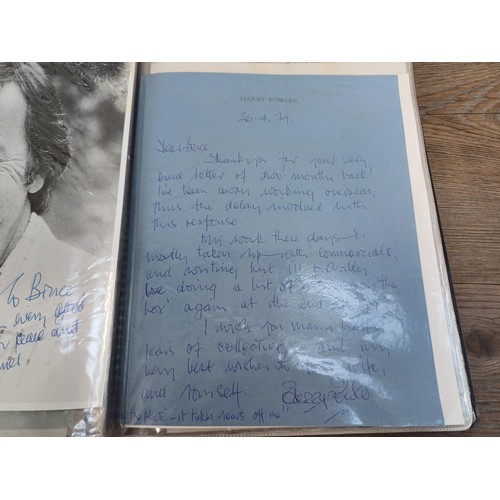 To Bruce
every good
peace and
HARRY FOWLER
26.4.79.
Dear Bruce
Thank you for your very
kind letter of two months back!
I've been away working overseas,
thus the delay involved with
this response
My work these days is
mostly taken up with commercials,
and writing but I'll probably
be doing a bit of the
box' again at the end
I wish you many happy
years of collecting and my
very best wishes to
and yourself.
the M.B.E - it takes years off me"